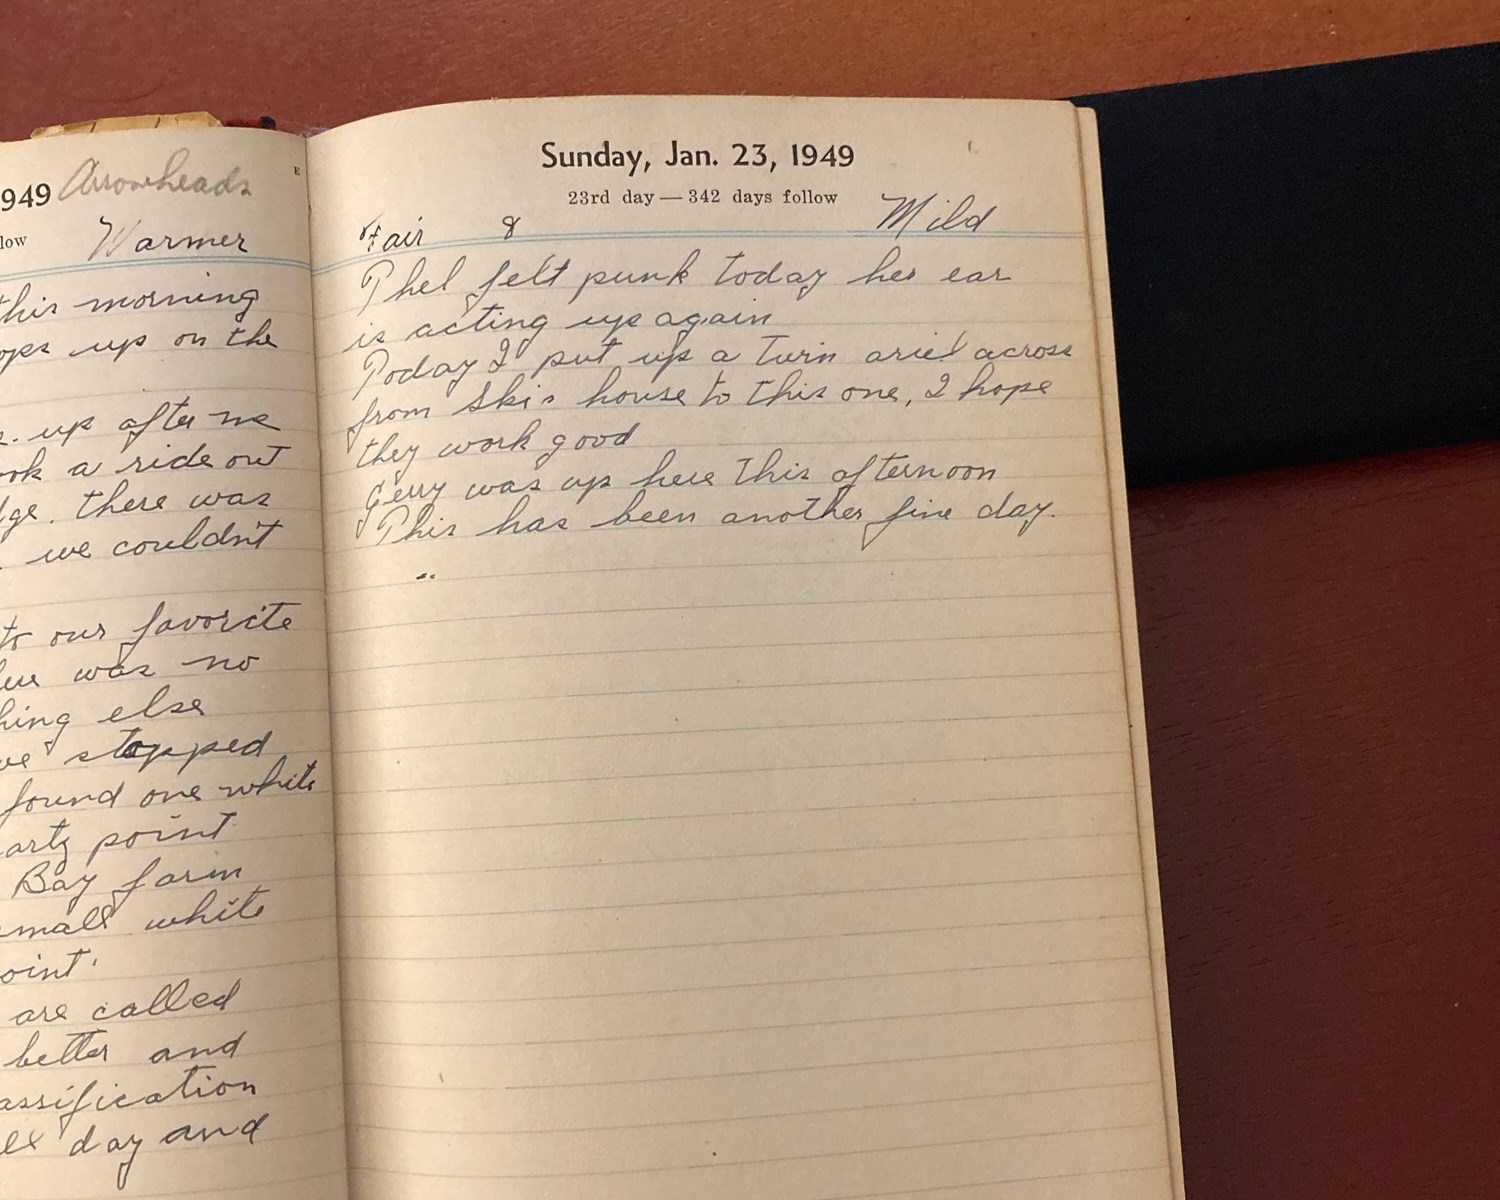 949 Arrowheads
low Warmer
this morning
ops up on the
up after me
ook a ride out
dge. there was
. we couldn't
to our favorite
here was no
thing else
we stopped
found one white
arty point
Bay farm
small white
oint.
are called
better and
assification
day and
E
Sunday, Jan. 23, 1949
23rd day — 342 days follow
Fair 8 Mild
Phel felt punk today her ear
is acting up again
Today I put up a twin ariel across
from Skis house to this one, I hope
they work good
Gerry was up here this afternoon
This has been another fine day.